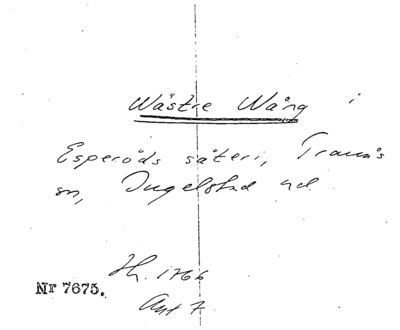 Wästre Wång i
Esperöds säteri, Tranås
sn, Ingelstad hd.
Hg. 1766
Akt 7
Nr 7675.